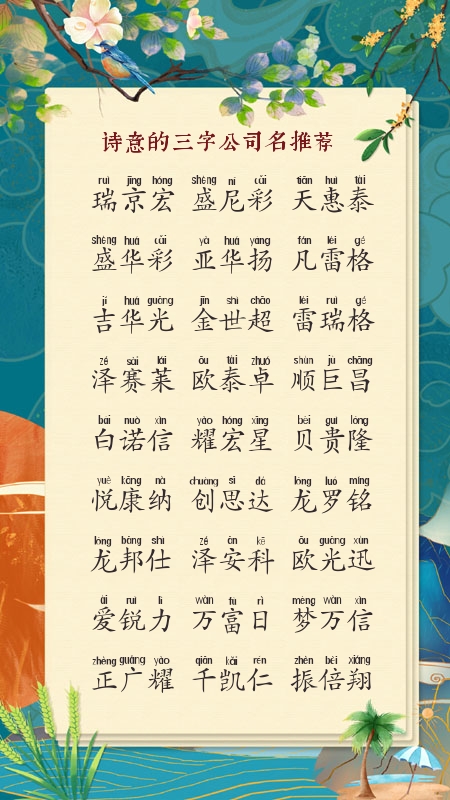 诗意的三字公司名推荐
ruì jīng hóng shèng ní cǎi tiān huì tài
瑞京宏 盛尼彩 天惠泰
shèng huá cǎi yà huá yáng fán léi gé
盛华彩 亚华扬 凡雷格
jí huá guāng jīn shì chāo léi ruì gé
吉华光 金世超 雷瑞格
zé sài lái ōu tài zhuó shùn jù chāng
泽赛莱 欧泰卓 顺巨昌
bái nuò xìn yào hóng xīng bèi guì lóng
白诺信 耀宏星 贝贵隆
yuè kāng nà chuàng sī dá lóng luó míng
悦康纳 创思达 龙罗铭
lóng bāng shì zé ān kē ōu guāng xùn
龙邦仕 泽安科 欧光迅
ài ruì lì wàn fù rì mèng wàn xìn
爱锐力 万富日 梦万信
zhèng guǎng yào qiān kǎi rén zhèn bèi xiáng
正广耀 千凯仁 振倍翔